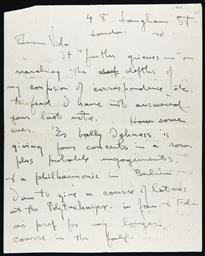 48 Langham St
London. W
Dear Vida
It "further grieves me" on
searching the depths of
my confusion of correspondence etc.
to find I have not answered
your last note. How come
ever. is bally Ugliness is
giving four concerts in a row
plus private engagements.
& a philharmonic in Berlin
I am to give a course of lectures
at the Polytechnique. in Jan & Feb
as pref for my longer
course in the fall